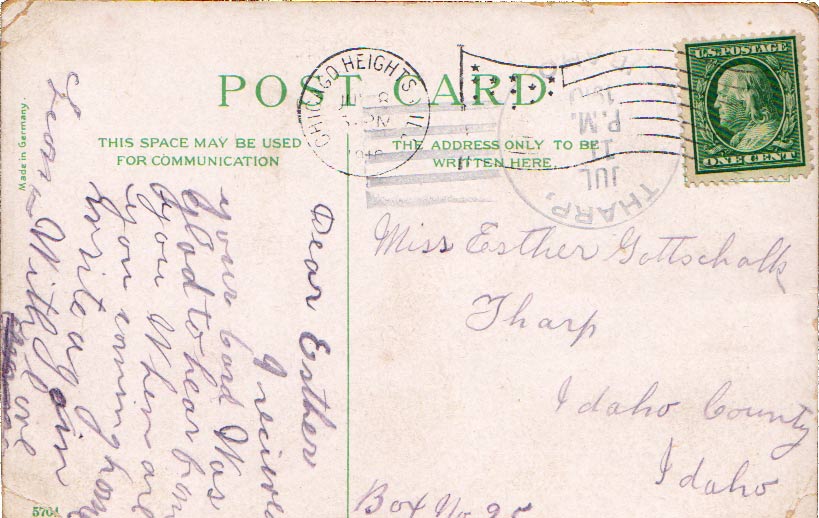 POST CARD
Made in Germany.
THIS SPACE MAY BE USED
FOR COMMUNICATION
THE ADDRESS ONLY TO BE
WRITTEN HERE
CHICAGO HEIGHTS, ILL.
U.S. POSTAGE
ONE CENT
THARP,
JUL
11
P.M.
Dear Esther
I recieved
your card Was
glad to hear from
you When are
you coming home
Write again
With love
Leona
Miss Esther Gottschalk
Tharp
Idaho County
Idaho
Box No. 95
5704